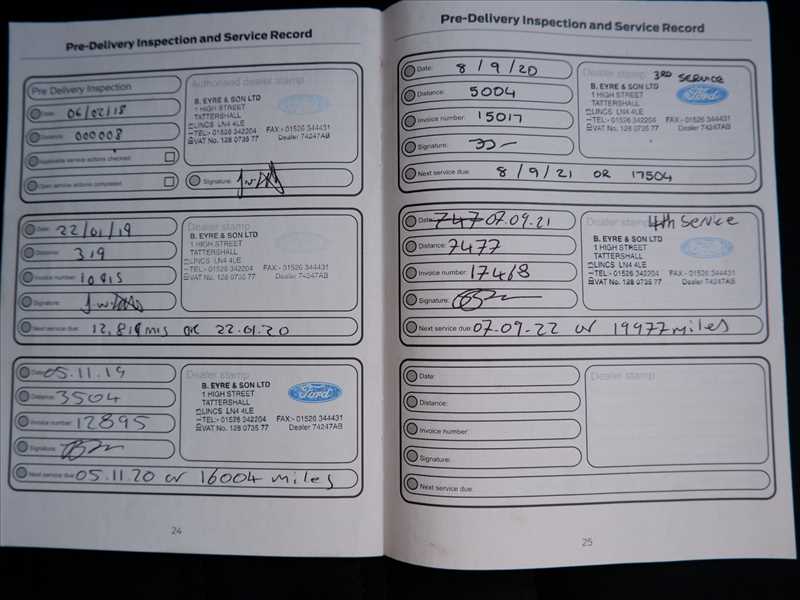 Pre-Delivery Inspection and Service Record
Pre Delivery Inspection
Date: 06/02/18
Distance: 000008
Applicable service actions checked
Open service actions completed
Authorised dealer stamp
B. EYRE & SON LTD
1 HIGH STREET
TATTERSHALL
LINCS LN4 4LE
TEL:- 01526 342204 FAX:- 01526 344431
VAT No. 128 0735 77 Dealer 74247AB
Signature:
Date: 22/01/19
Distance: 319
Invoice number:
Signature:
Next service due: MLS OR 22.01.20
Dealer stamp
B. EYRE & SON LTD
1 HIGH STREET
TATTERSHALL
LINCS LN4 4LE
TEL:- 01526 342204 FAX:- 01526 344431
VAT No. 128 0735 77 Dealer 74247AB
Date: 05.11.19
Distance: 3504
Invoice number: 12895
Signature:
Next service due: 05.11.20 or 16004 miles
Dealer stamp
B. EYRE & SON LTD
1 HIGH STREET
TATTERSHALL
LINCS LN4 4LE
TEL:- 01526 342204 FAX:- 01526 344431
VAT No. 128 0735 77 Dealer 74247AB
Ford
24
Pre-Delivery Inspection and Service Record
Date: 8/9/20
Distance: 5004
Invoice number: 15017
Signature:
Next service due: 8/9/21 OR 17504
Dealer stamp 3RD SERVICE
B. EYRE & SON LTD
1 HIGH STREET
TATTERSHALL
LINCS LN4 4LE
TEL:- 01526 342204 FAX:- 01526 344431
VAT No. 128 0735 77 Dealer 74247AB
Ford
Date: 747 07.09.21
Distance: 7477
Invoice number: 17468
Signature:
Next service due: 07.09.22 or 19977 miles
Dealer stamp 4th Service
B. EYRE & SON LTD
1 HIGH STREET
TATTERSHALL
LINCS LN4 4LE
TEL:- 01526 342204 FAX:- 01526 344431
VAT No. 128 0735 77 Dealer 74247AB
Date:
Distance:
Invoice number:
Signature:
Next service due:
Dealer stamp
25